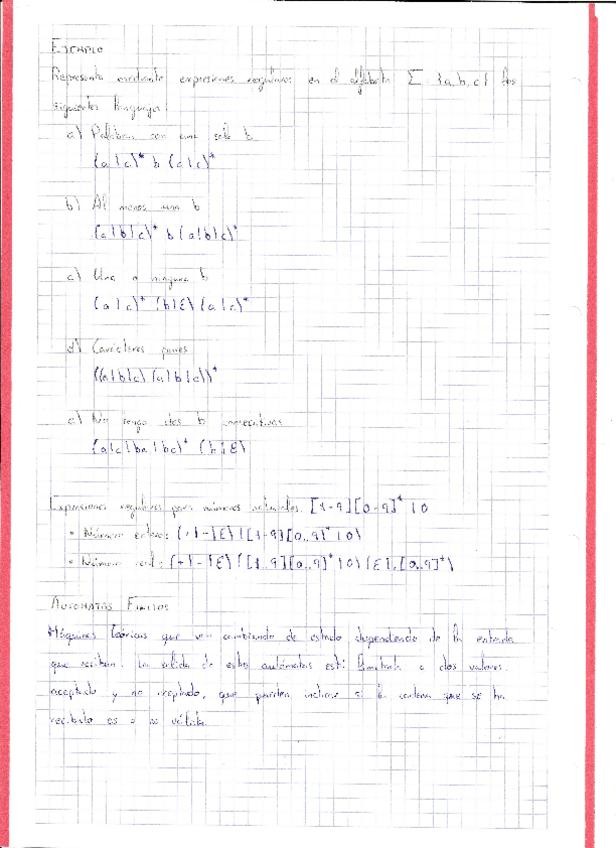 EJEMPLO
Representa mediante expresiones regulares en el alfabeto Σ {a,b,c} los
siguientes lenguajes:
a) Palabras con una sola b
(a|c)* b (a|c)*
b) Al menos una b
(a|b|c)* b (a|b|c)*
c) Una o ninguna b
(a|c)* (b|ε) (a|c)*
d) Carácteres pares
((a|b|c) (a|b|c))*
e) No tenga dos b consecutivas
(a|c|ba|bc)* (b|ε)
Expresiones regulares para números naturales. [1-9][0-9]* | 0
• Número entero: (+|-|ε) ([1-9][0..9]* | 0)
• Número real: (+|-|ε) ([1..9][0..9]* | 0) (ε|.[0..9]*)
AUTOMATAS FINITOS
Máquinas teóricas que van cambiando de estado dependiendo de la entrada
que reciban. La salida de estos autómatas está limitada a dos valores:
aceptado y no aceptado, que pueden indicar si la cadena que se ha
recibido es o no válida.